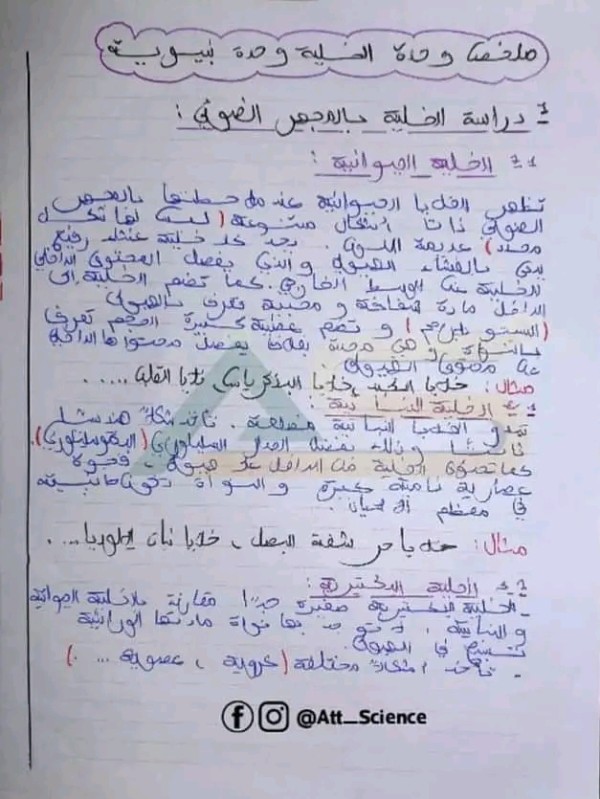 ملخص وحدة الخلية وحدة بنيوية
1- دراسة الخلية بالمجهر الضوئي:
1-1 الخلية الحيوانية:
تظهر الخلايا الحيوانية عند ملاحظتها بالمجهر
الضوئي ذات أشكال متنوعة (ليست لها شكل
محدد) عديمة اللون. يحد كل خلية غشاء رفيع
يدعى بالغشاء الهيولي والذي يفصل المحتوى الداخلي
للخلية عن الوسط الخارجي. كما تضم الخلية في
الداخل مادة شفافة و محببة تعرف بالهيولى
(السيتوبلازم) و تضم عضية كبيرة الحجم تعرف
بالنواة وهي محدة بغلاف يفصل محتواها الداخلي
عن محتوى الهيولى.
مثال: خلايا الكبد، خلايا البنكرياس، خلايا القلب .....
الخلية النباتية:
تبدو الخلايا النباتية مضلعة. تأخذ شكلا هندسيا
ثابتا وذلك بفضل الجدار السليلوزي (البكتوسليلوزي).
كما تحتوي الخلية من الداخل على هيولى، فجوة
عصارية نامية كبيرة والنواة تكون جانبية
في معظم الأحيان.
مثال: خلايا حرشفة البصل، خلايا نبات الإيلوديا....
الخلية البكتيرية:
- الخلية البكتيرية صغيرة جدا مقارنة بالخلية الحيوانية
والنباتية، لا توجد بها نواة مادتها الوراثية
تسبح في الهيولى
- تأخذ أشكال مختلفة (كروية، عصوية ...)
@Att_Science